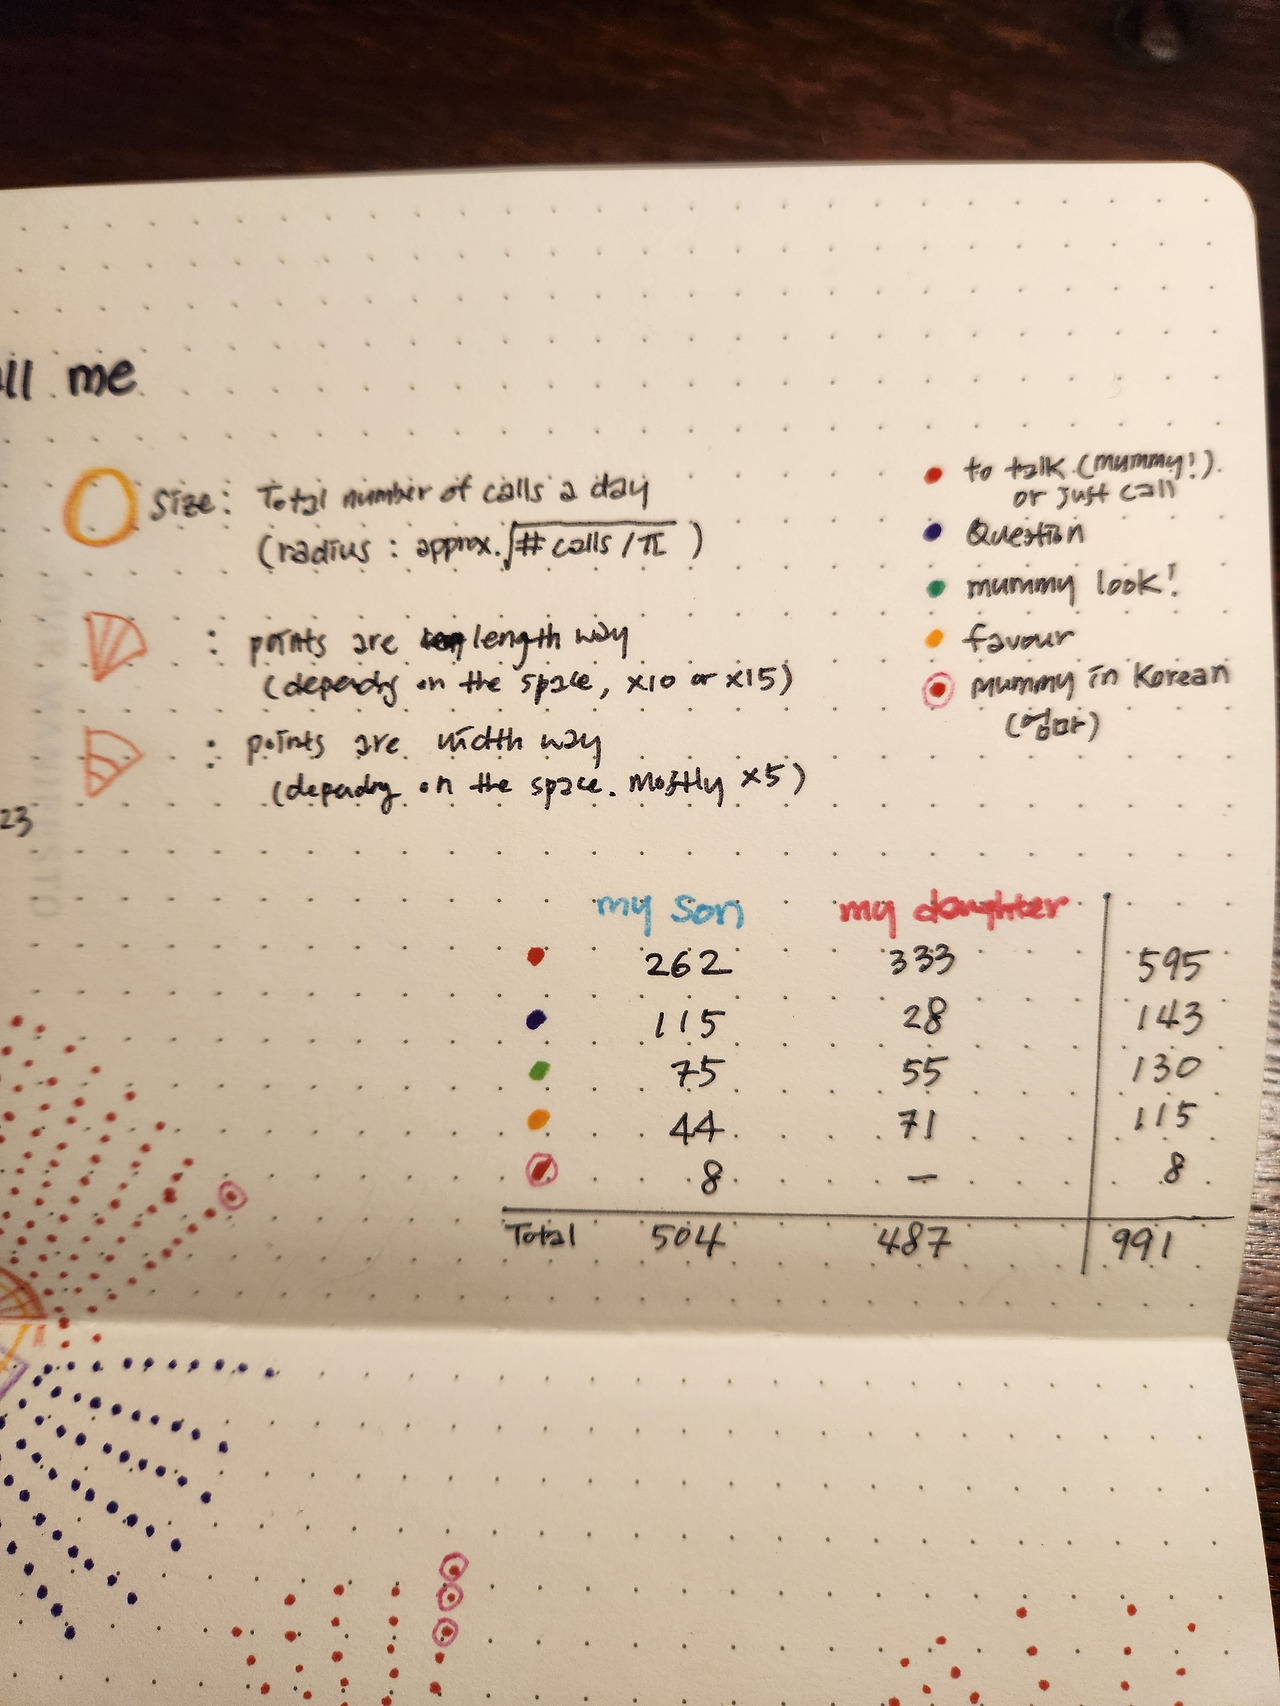 all me
Size: Total number of calls a day
(radius: approx. √# calls / π )
: points are length way
(dependg on the space, x10 or x15)
: points are width way
(dependg on the space. Mostly x5)
23
to talk (mummy!).
or just call
Question
mummy look!
favour
Mummy in Korean
(엄마)
my son my daughter
262 333 595
115 28 143
75 55 130
44 71 115
8 – 8
Total 504 487 991